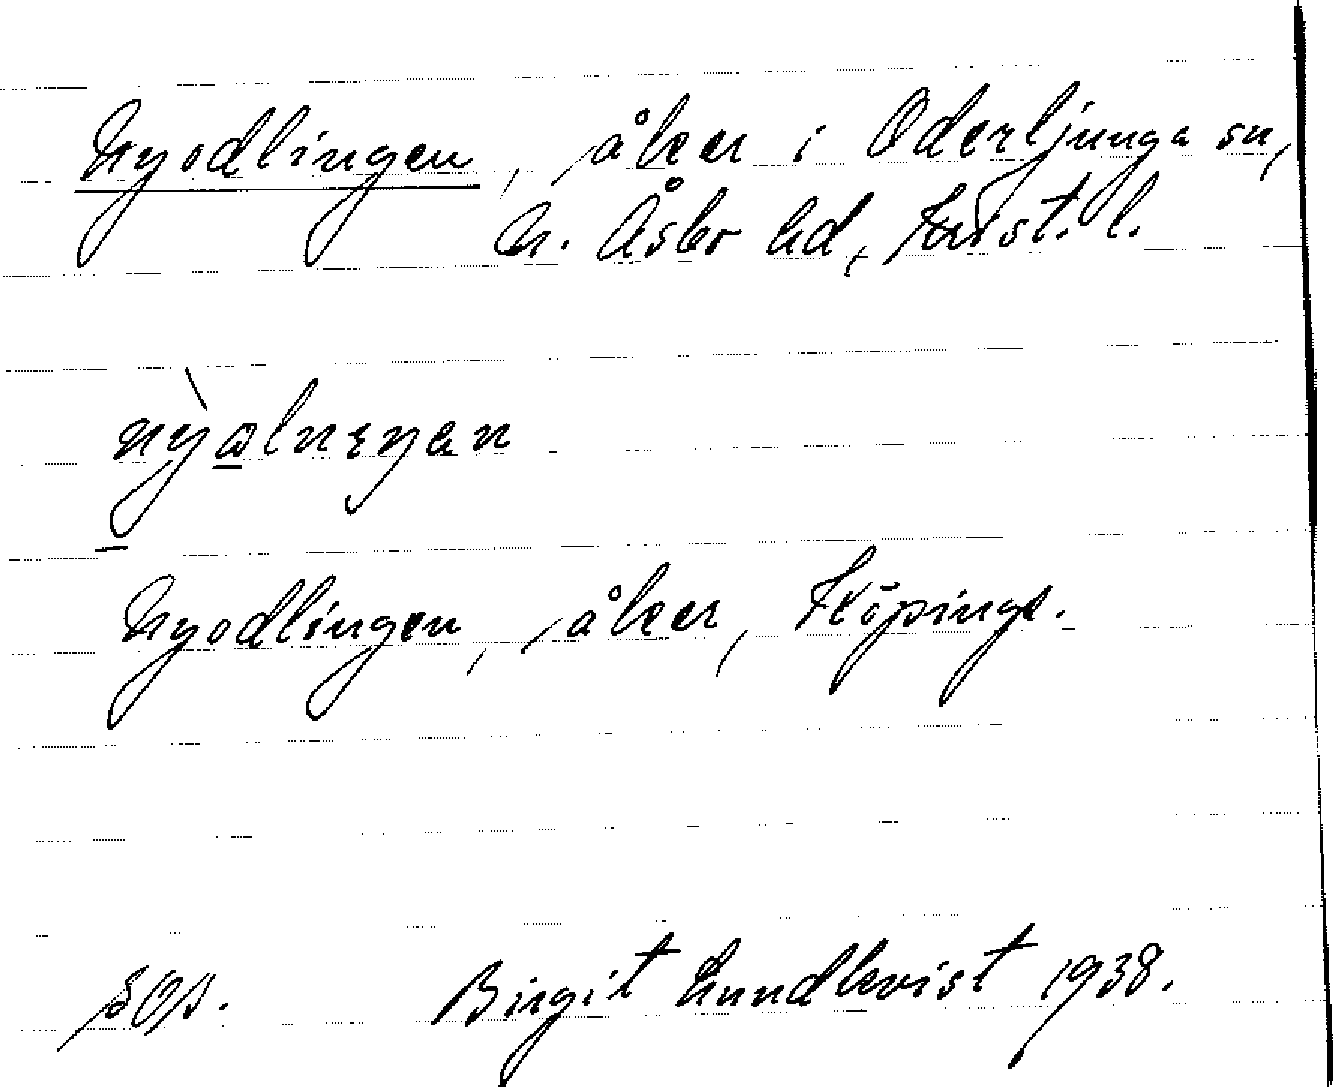 Nyodlingen, åker i Oderljunga sn,
N. Åsbo hd, Krist. l.
nỳo̲lnɪŋən
Nyodlingen, åker, Köpinge.
Birgit Lundkvist 1938.